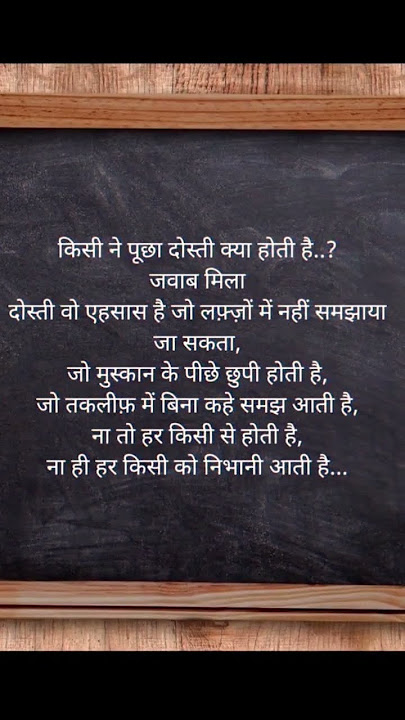 किसी ने पूछा दोस्ती क्या होती है..?
जवाब मिला
दोस्ती वो एहसास है जो लफ़्ज़ों में नहीं समझाया
जा सकता,
जो मुस्कान के पीछे छुपी होती है,
जो तकलीफ़ में बिना कहे समझ आती है,
ना तो हर किसी से होती है,
ना ही हर किसी को निभानी आती है...